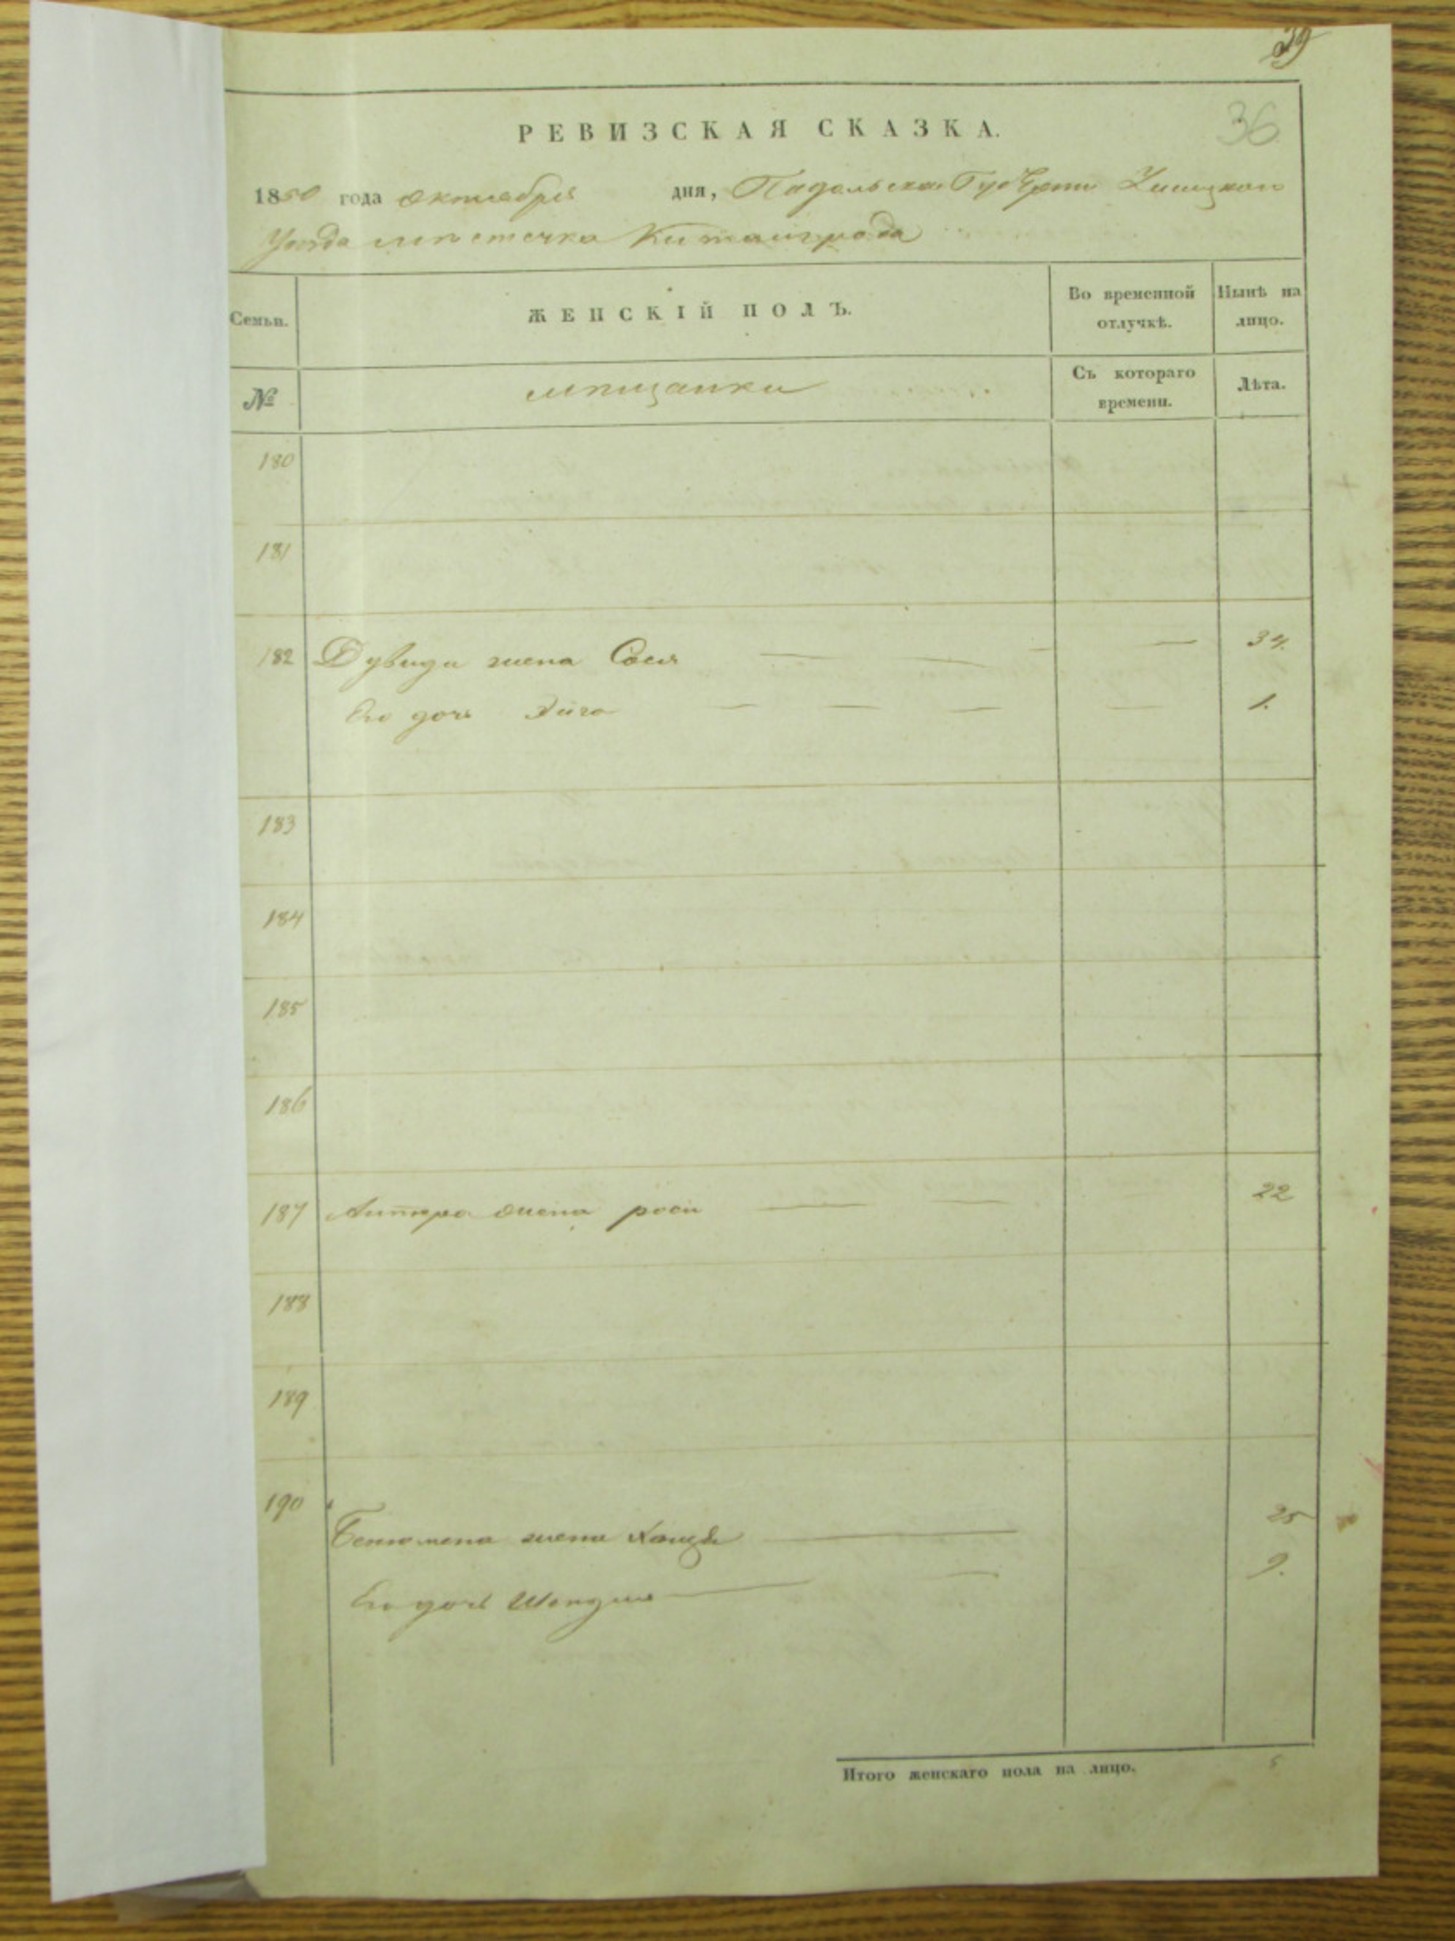 39
36
РЕВИЗСКАЯ СКАЗКА.
1850 года октября дня, Падольской Губерни Ушицкого
Уезда местечка Китайгрода
Семьи. ЖЕНСКІЙ ПОЛЪ. Во временной отлучкѣ. Нынѣ на лицо.
№ мещанки Съ котораго времени. Лѣта.
180
181
182 Дувида жена Сося — — 34.
Его дочь Эйга — — — — 1.
183
184
185
186
187 жена роси — — 22
188
189
190 Бениомена жена — 25
Его дочь — — 9.
Итого женскаго пола на лицо. 5